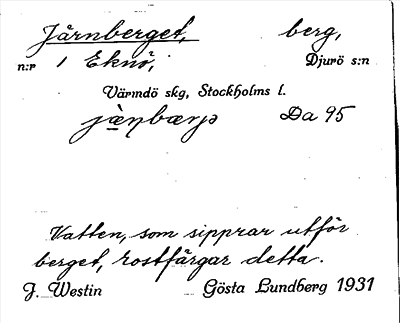 Järnberget, berg,
n:r 1 Eknö, Djurö s:n
Värmdö skg, Stockholms l.
Da 95
Vatten, som sipprar utför
berget, rostfärgar detta.
J. Westin Gösta Lundberg 1931